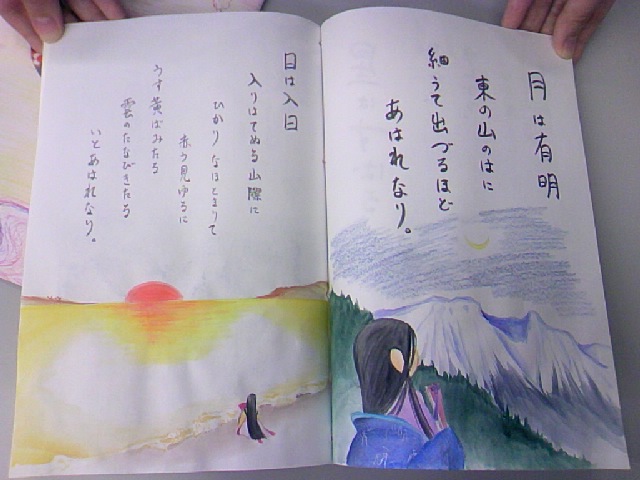 月は有明
東の山のはに
細うて出づるほど
あはれなり。
日は入日
入りはてぬる山際に
ひかりなほとまりて
赤う見ゆるに
うす黄ばみたる
雲のたなびきたる
いとあはれなり。